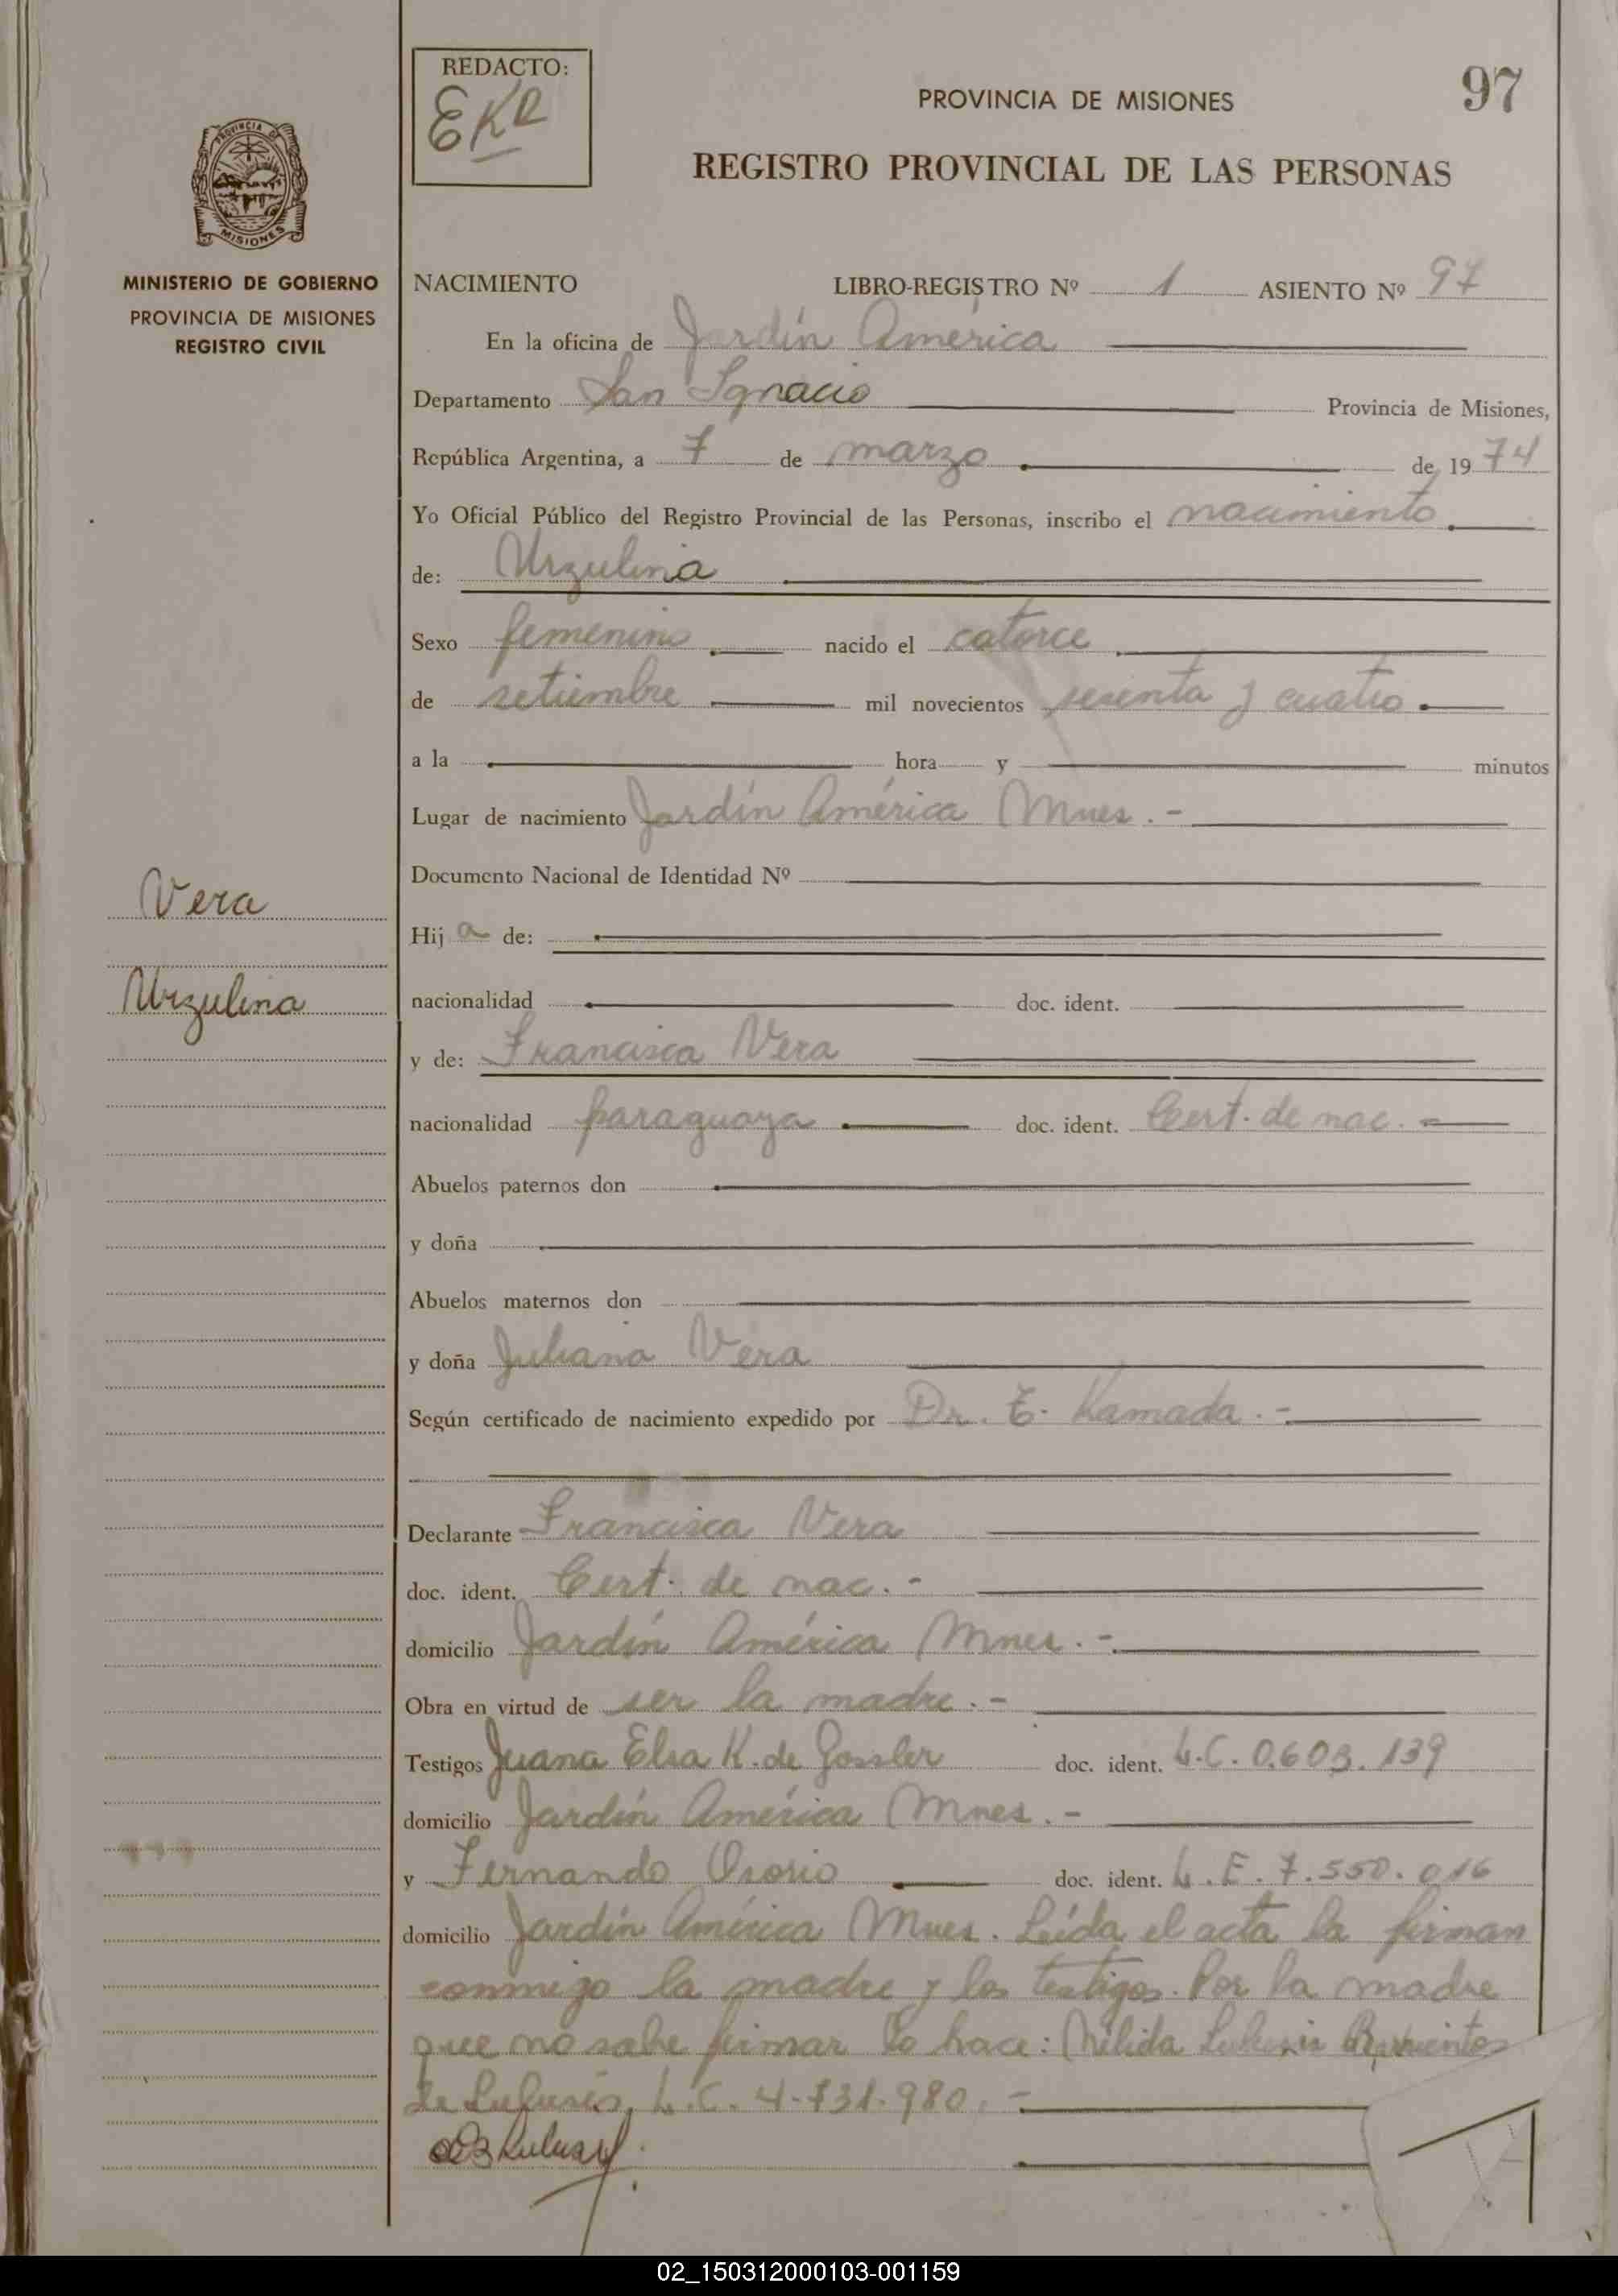 REDACTO:
EKR
PROVINCIA DE MISIONES
97
REGISTRO PROVINCIAL DE LAS PERSONAS
PROVINCIA DE
MISIONES
MINISTERIO DE GOBIERNO
PROVINCIA DE MISIONES
REGISTRO CIVIL
NACIMIENTO LIBRO-REGISTRO Nº 1 ASIENTO Nº 97
En la oficina de Jardín América
Departamento San Ignacio Provincia de Misiones,
República Argentina, a 7 de marzo de 19 74
Yo Oficial Público del Registro Provincial de las Personas, inscribo el nacimiento
de: Urzulina
Sexo femenino nacido el catorce
de setiembre mil novecientos sesenta y cuatro
a la hora y minutos
Lugar de nacimiento Jardín América Mnes. -
Documento Nacional de Identidad Nº
Vera
Hij a de:
Urzulina
nacionalidad doc. ident.
y de: Francisca Vera
nacionalidad paraguaya doc. ident. Cert. de nac. -
Abuelos paternos don
y doña
Abuelos maternos don
y doña Juliana Vera
Según certificado de nacimiento expedido por Dr. E. Kamada. -
Declarante Francisca Vera
doc. ident. Cert. de nac. -
domicilio Jardín América Mnes. -
Obra en virtud de ser la madre. -
Testigos Juana Elsa K. de Gossler doc. ident. L.C. 0.603.139
domicilio Jardín América Mnes. -
y Fernando Osorio doc. ident. L.E. 7.550.016
domicilio Jardín América Mnes. Leída el acta la firman
conmigo la madre y los testigos. Por la madre
que no sabe firmar lo hace: Nélida
de L.C. 4.731.980. -
02_150312000103-001159